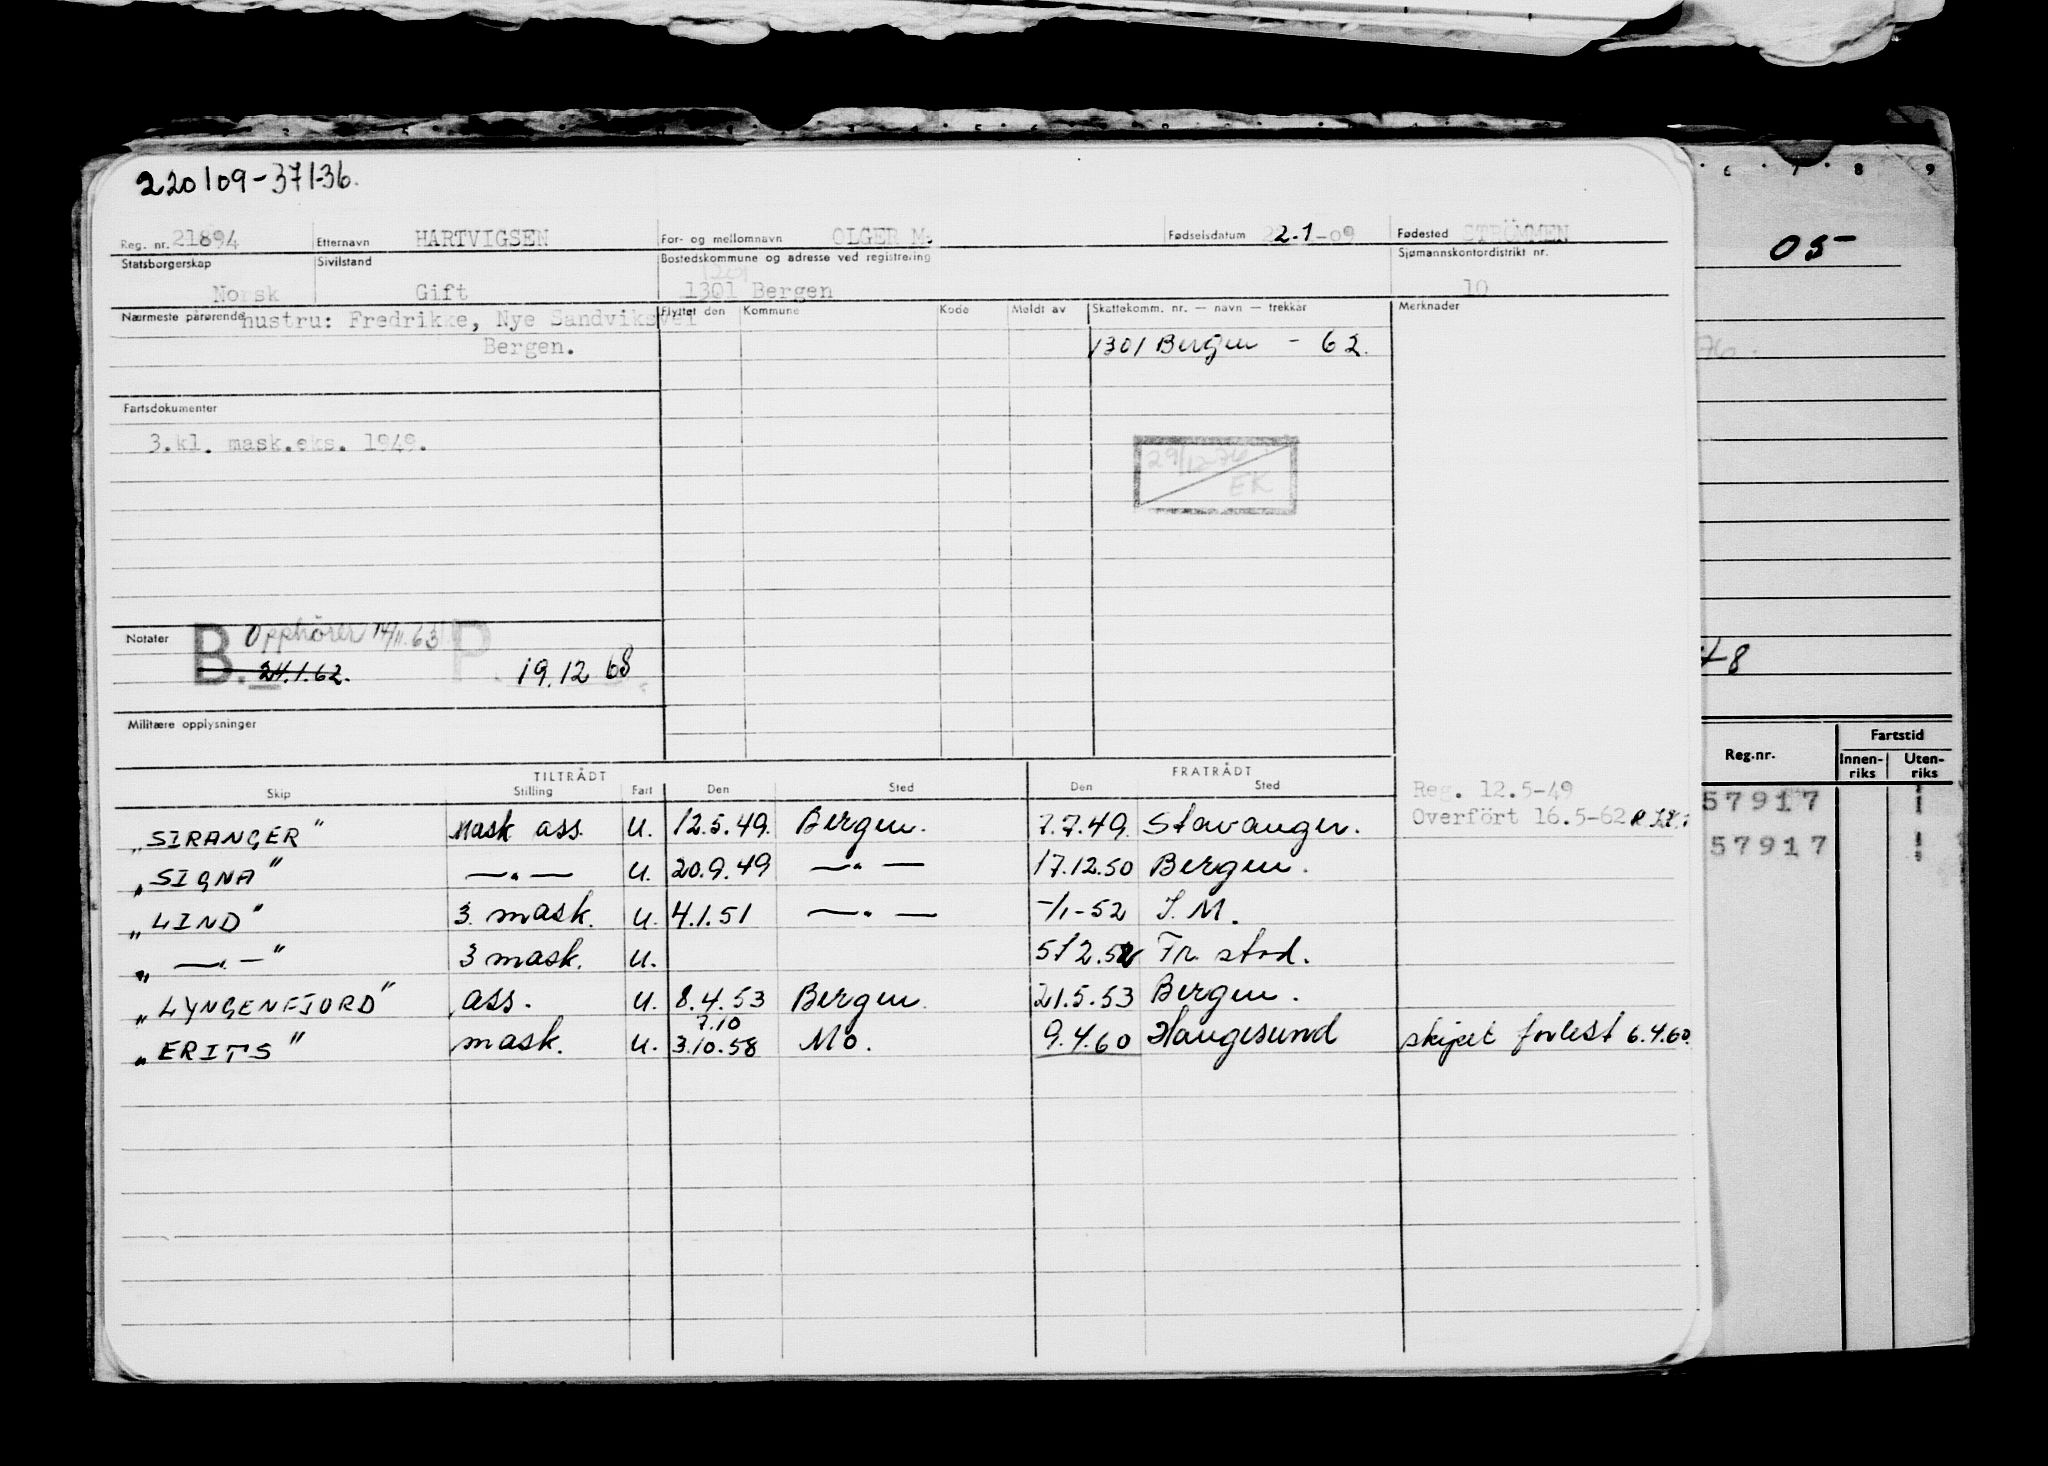 220109-37136.
Reg. nr. 21894 Etternavn HARTVIGSEN For- og mellomnavn OLGER M. Fødselsdatum 22.1-09 Fødested STRÖMMEN
Statsborgerskap Sivilstand Bostedskommune og adresse ved registrering Sjømannskontordistrikt nr.
1201
Norsk Gift 1301 Bergen 10
Nærmeste pårørende hustru: Fredrikke, Nye Sandviksvei Flyttet den Kommune Kode Meldt av Skattekomm. nr. — navn — trekkår Merknader
Bergen. 1301 Bergen - 62.
Fartsdokumenter
3.kl. mask.eks. 1949.
29/12-76
EK
Notater B. Opphörer 14/11.63 P.
24.1.62. 19.12 68
Militære opplysninger
TILTRÅDT FRATRÅDT
Skip Stilling Fart Den Sted Den Sted
Reg. 12.5-49
Overfört 16.5-62
„SIRANGER" Mask ass. U. 12.5.49. Bergen. 7.7.49. Stavanger.
„SIGNA" —„— U. 20.9.49 —„— 17.12.50 Bergen.
„LIND" 3. mask. U. 4.1.51 —„— -/1-52 S. M.
„—„—" 3 mask. U. 5/2.52 Fr. stod.
„LYNGENFJORD" ass. U. 8.4.53 Bergen 21.5.53 Bergen.
7.10
„ERITS" mask. U. 3.10.58 Mo. 9.4.60 Haugesund skipet forlest 6.4.60.
6 7 8 9
05
76.
48
Reg.nr. Fartstid
Innen-riks Uten-riks
57917
57917